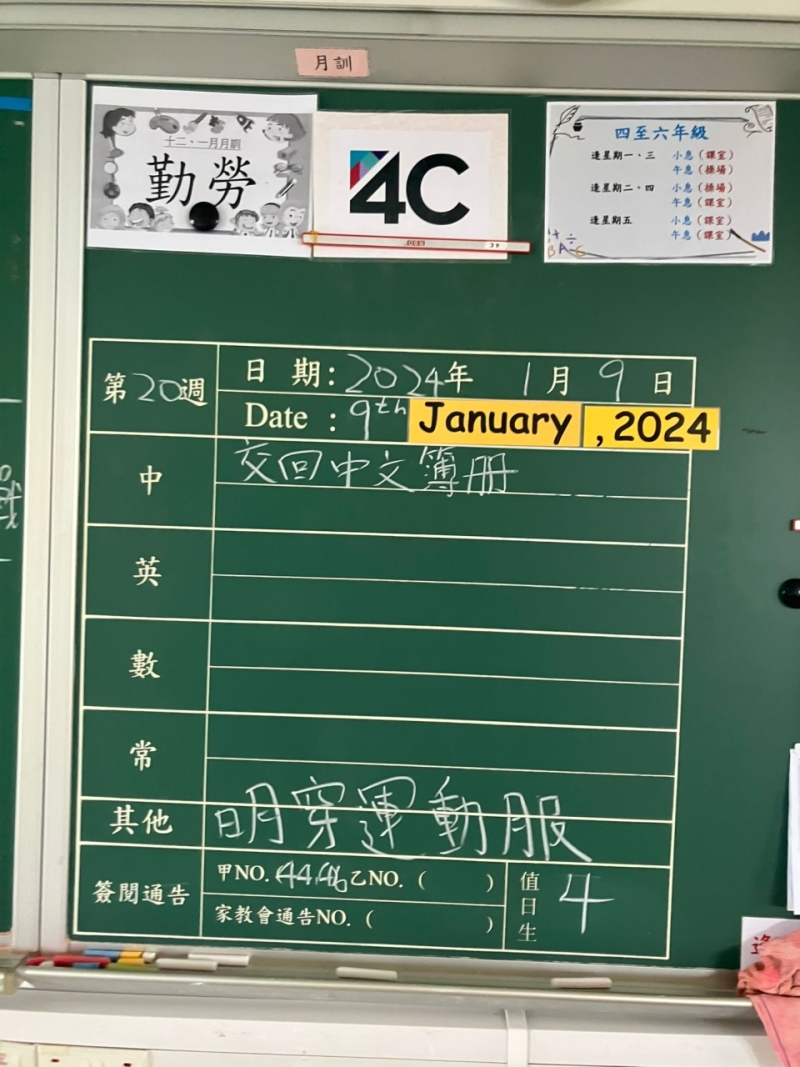 月訓
十二、一月月訓
勤勞
4C
四至六年級
逢星期一、三 小息（課室）
午息（操場）
逢星期二、四 小息（操場）
午息（課室）
逢星期五 小息（課室）
午息（課室）
第20週
日 期：2024年 1月 9日
Date : 9th January , 2024
中 交回中文簿冊
英
數
常
其他 明穿運動服
簽閱通告 甲NO.(44,46 乙NO. ( )
家教會通告NO. ( )
值日生 4